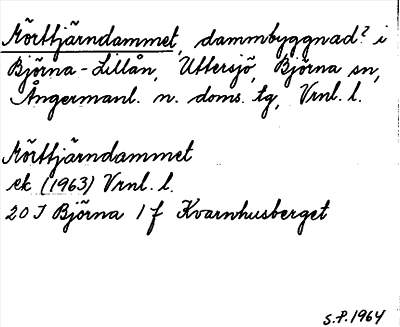 Mörttjärndammet, dammbyggnad? i
Björna-Lillån, Uttersjö, Björna sn,
Ångermanl. n. doms. tg, Vrnl. l.
Mörttjärndammet
ek (1963) Vrnl. l.
20 J Björna 1 f Kvarnhusberget
S.P. 1964